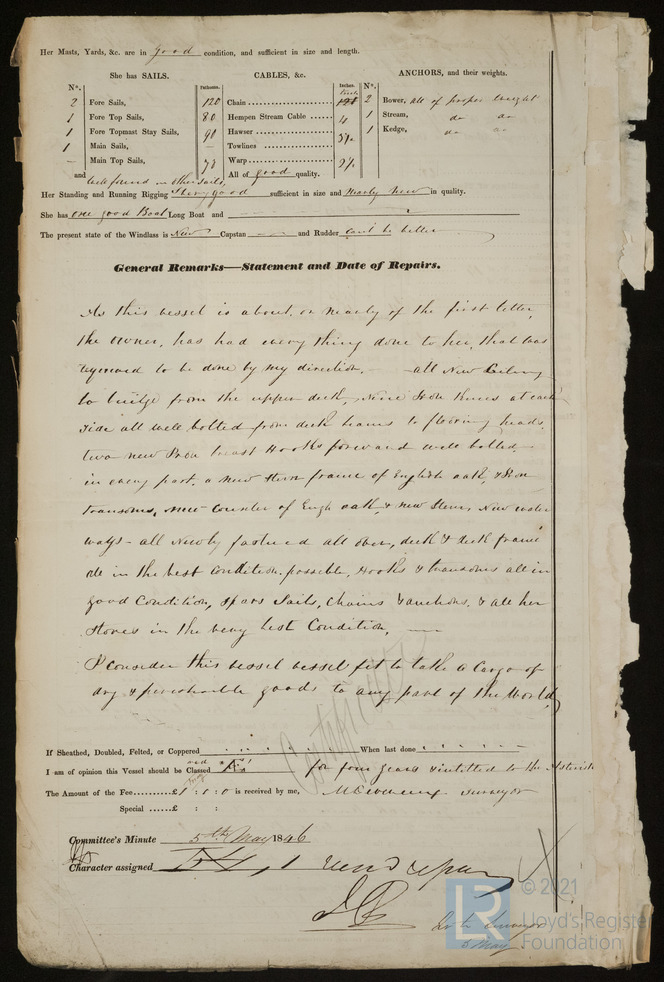 Her Masts, Yards, &c. are in good condition, and sufficient in size and length.
She has SAILS.
CABLES, &c.
ANCHORS, and their weights.
N°.
Fathoms.
Inches.
N°.
2 Fore Sails,
120 Chain
2 Bower, all of proper weight
1 Fore Top Sails,
80 Hempen Stream Cable 4
1 Stream, do do
1 Fore Topmast Stay Sails,
90 Hawser
1 Kedge, do do
1 Main Sails,
Towlines
— Main Top Sails,
Warp
and well found in other sails,
All of good quality.
Her Standing and Running Rigging Very good sufficient in size and Nearly New in quality.
She has one good Boat Long Boat and
The present state of the Windlass is New Capstan and Rudder can't be better
General Remarks—Statement and Date of Repairs.
As this vessel is about, or nearly of the first letter,
the owner, has had every thing done to her, that was
required to be done by my direction. all New Ceiling
to bulge from the upper deck, Nine Iron Knees at each
side all well bolted from deck beams to flooring heads,
two new Iron breast Hooks forward well bolted
in every part, a new stern frame of English oak, & Iron
transoms, new counter of Engh oak, & new Stem, New water
ways - all Newly fastened all over, deck & deck frame
are in the best condition possible, Hooks & transoms all in
good Condition, Spars Sails, Chains & anchors, & all her
Stores in the very best Condition,
I consider this vessel vessel fit to take a Cargo of
dry & perishable goods to any part of the World,
Certificate
If Sheathed, Doubled, Felted, or Coppered When last done
I am of opinion this Vessel should be Classed for four years & intitled to the Asterisk
The Amount of the Fee £1 : 0 : 0 is received by me, Surveyor
Special £ : :
Committee's Minute 5th May 1846
Character assigned
© 2021
LR
Lloyd's Register
Foundation
6 May